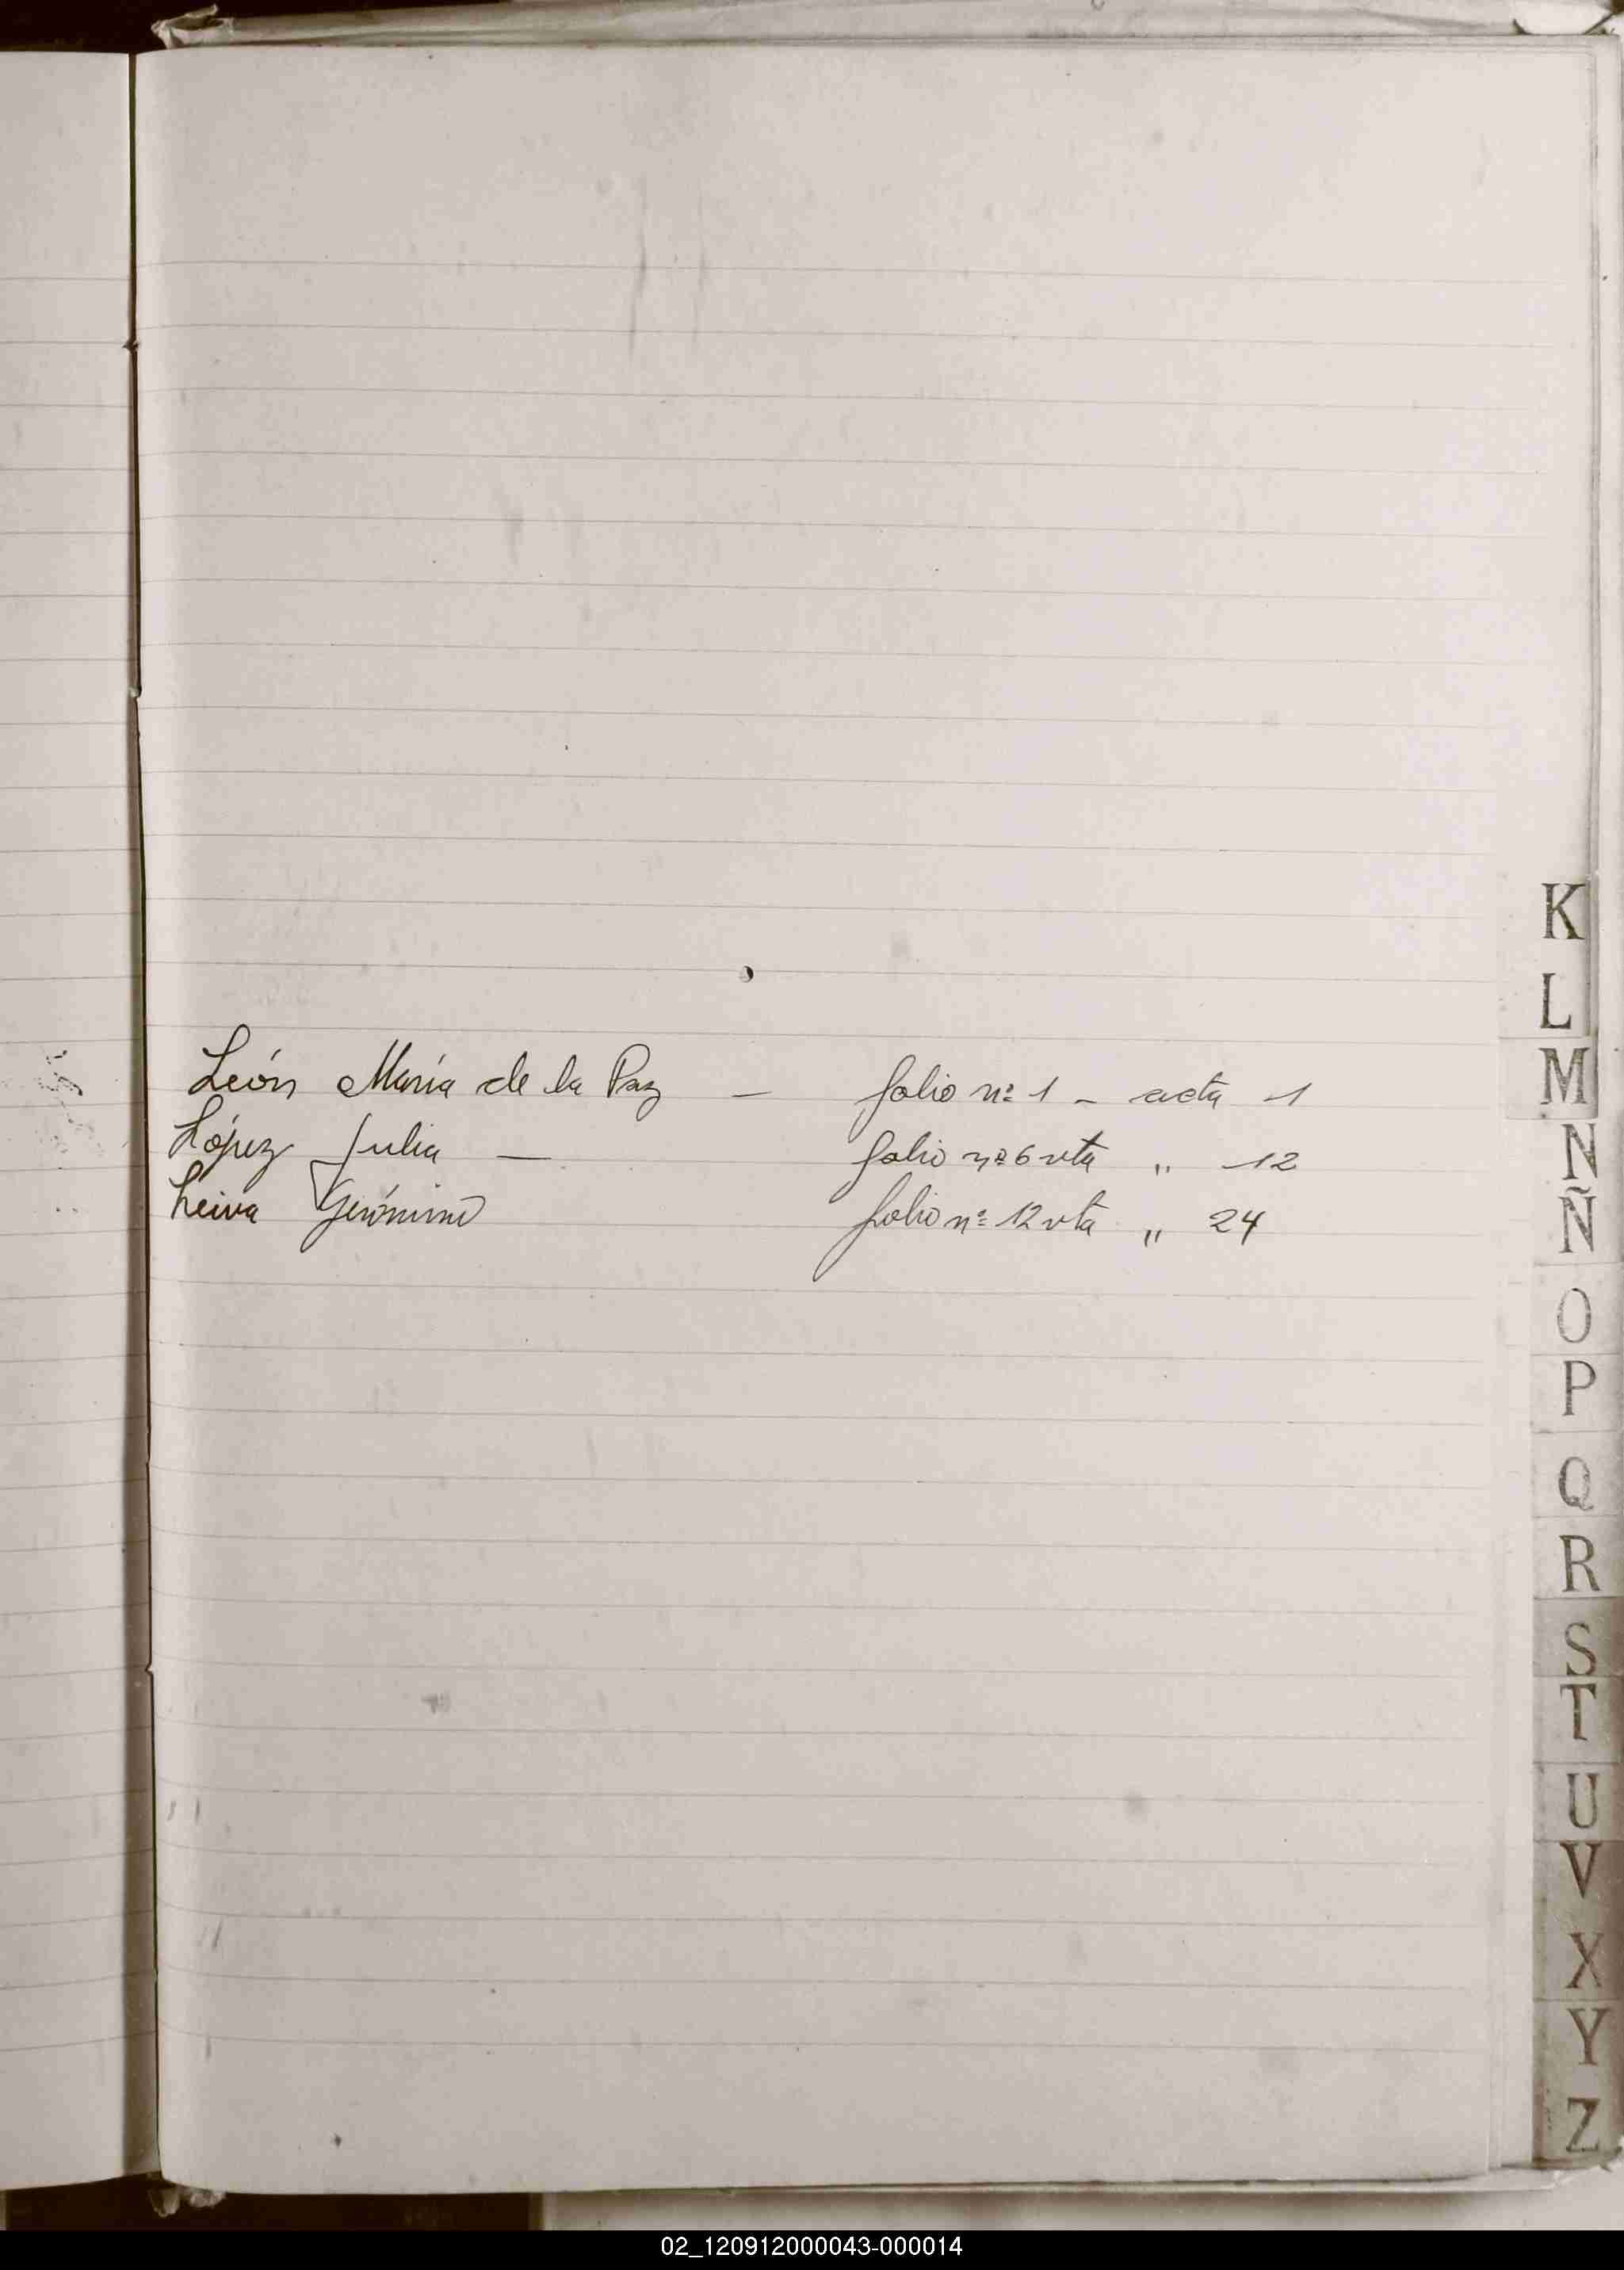 León María de la Paz — folio nº 1 - acta 1
López Julia — folio nº 6 vta " 12
Leiva Gerónimo folio nº 12 vta " 24
K
L
M
N
Ñ
O
P
Q
R
S
T
U
V
X
Y
Z
02_120912000043-000014